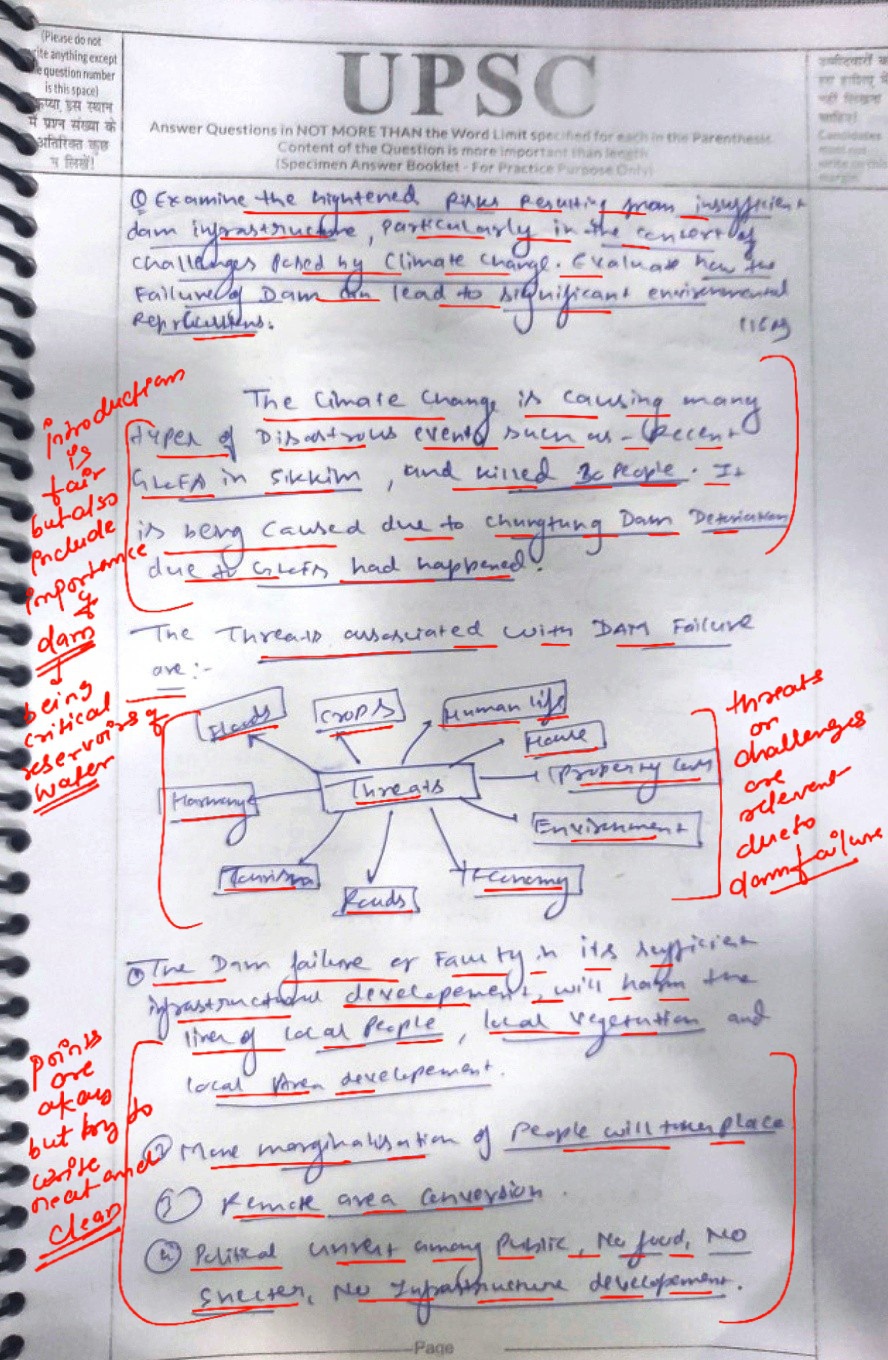 (Please do not
write anything except
the question number
is this space)
कृप्या इस स्थान
में प्रश्न संख्या के
अतिरिक्त कुछ
न लिखें!
UPSC
Answer Questions in NOT MORE THAN the Word Limit specified for each in the Parenthesis.
Content of the Question is more important than length
(Specimen Answer Booklet - For Practice Purpose Only)
उम्मीदवारों को
इस हाशिए में
नहीं लिखना
चाहिए!
Candidates
must not
write on this
margin
Q Examine the hightened Risks Resulting from insufficient
dam infrastructure, particularly in the context of
challenges posed by Climate change. Evaluate how the
Failure of Dam can lead to significant environmental
Reprcussions.
The Cimate change is causing many
types of Disastrous events such as - Recent
GLOFA in Sikkim, and killed 30 people. It
is being caused due to Chungtung Dam
due to GLOFA had happened.
introduction
is
fair
but also
include
importance
of
dam
being
critical
reservoirs of
water
The Threats associated with DAM Failure
are:-
Floods
Crops
Human life
House
Property loss
Harmony
Threats
Environment
Tourism
Roads
Economy
threats
or
challenges
are
relevent
due to
dam failure
① The Dam failure or Faulty in its sufficient
infrastructural developement, will harm the
lives of local people, local vegetation and
local Area developement.
② More marginalisation of people will taken place
③ Remote area conversion.
④ Political unrest among public, No food, NO
Shelter, No Infrastructure developement.
points
are
okay
but try to
write
neat and
clean
Page